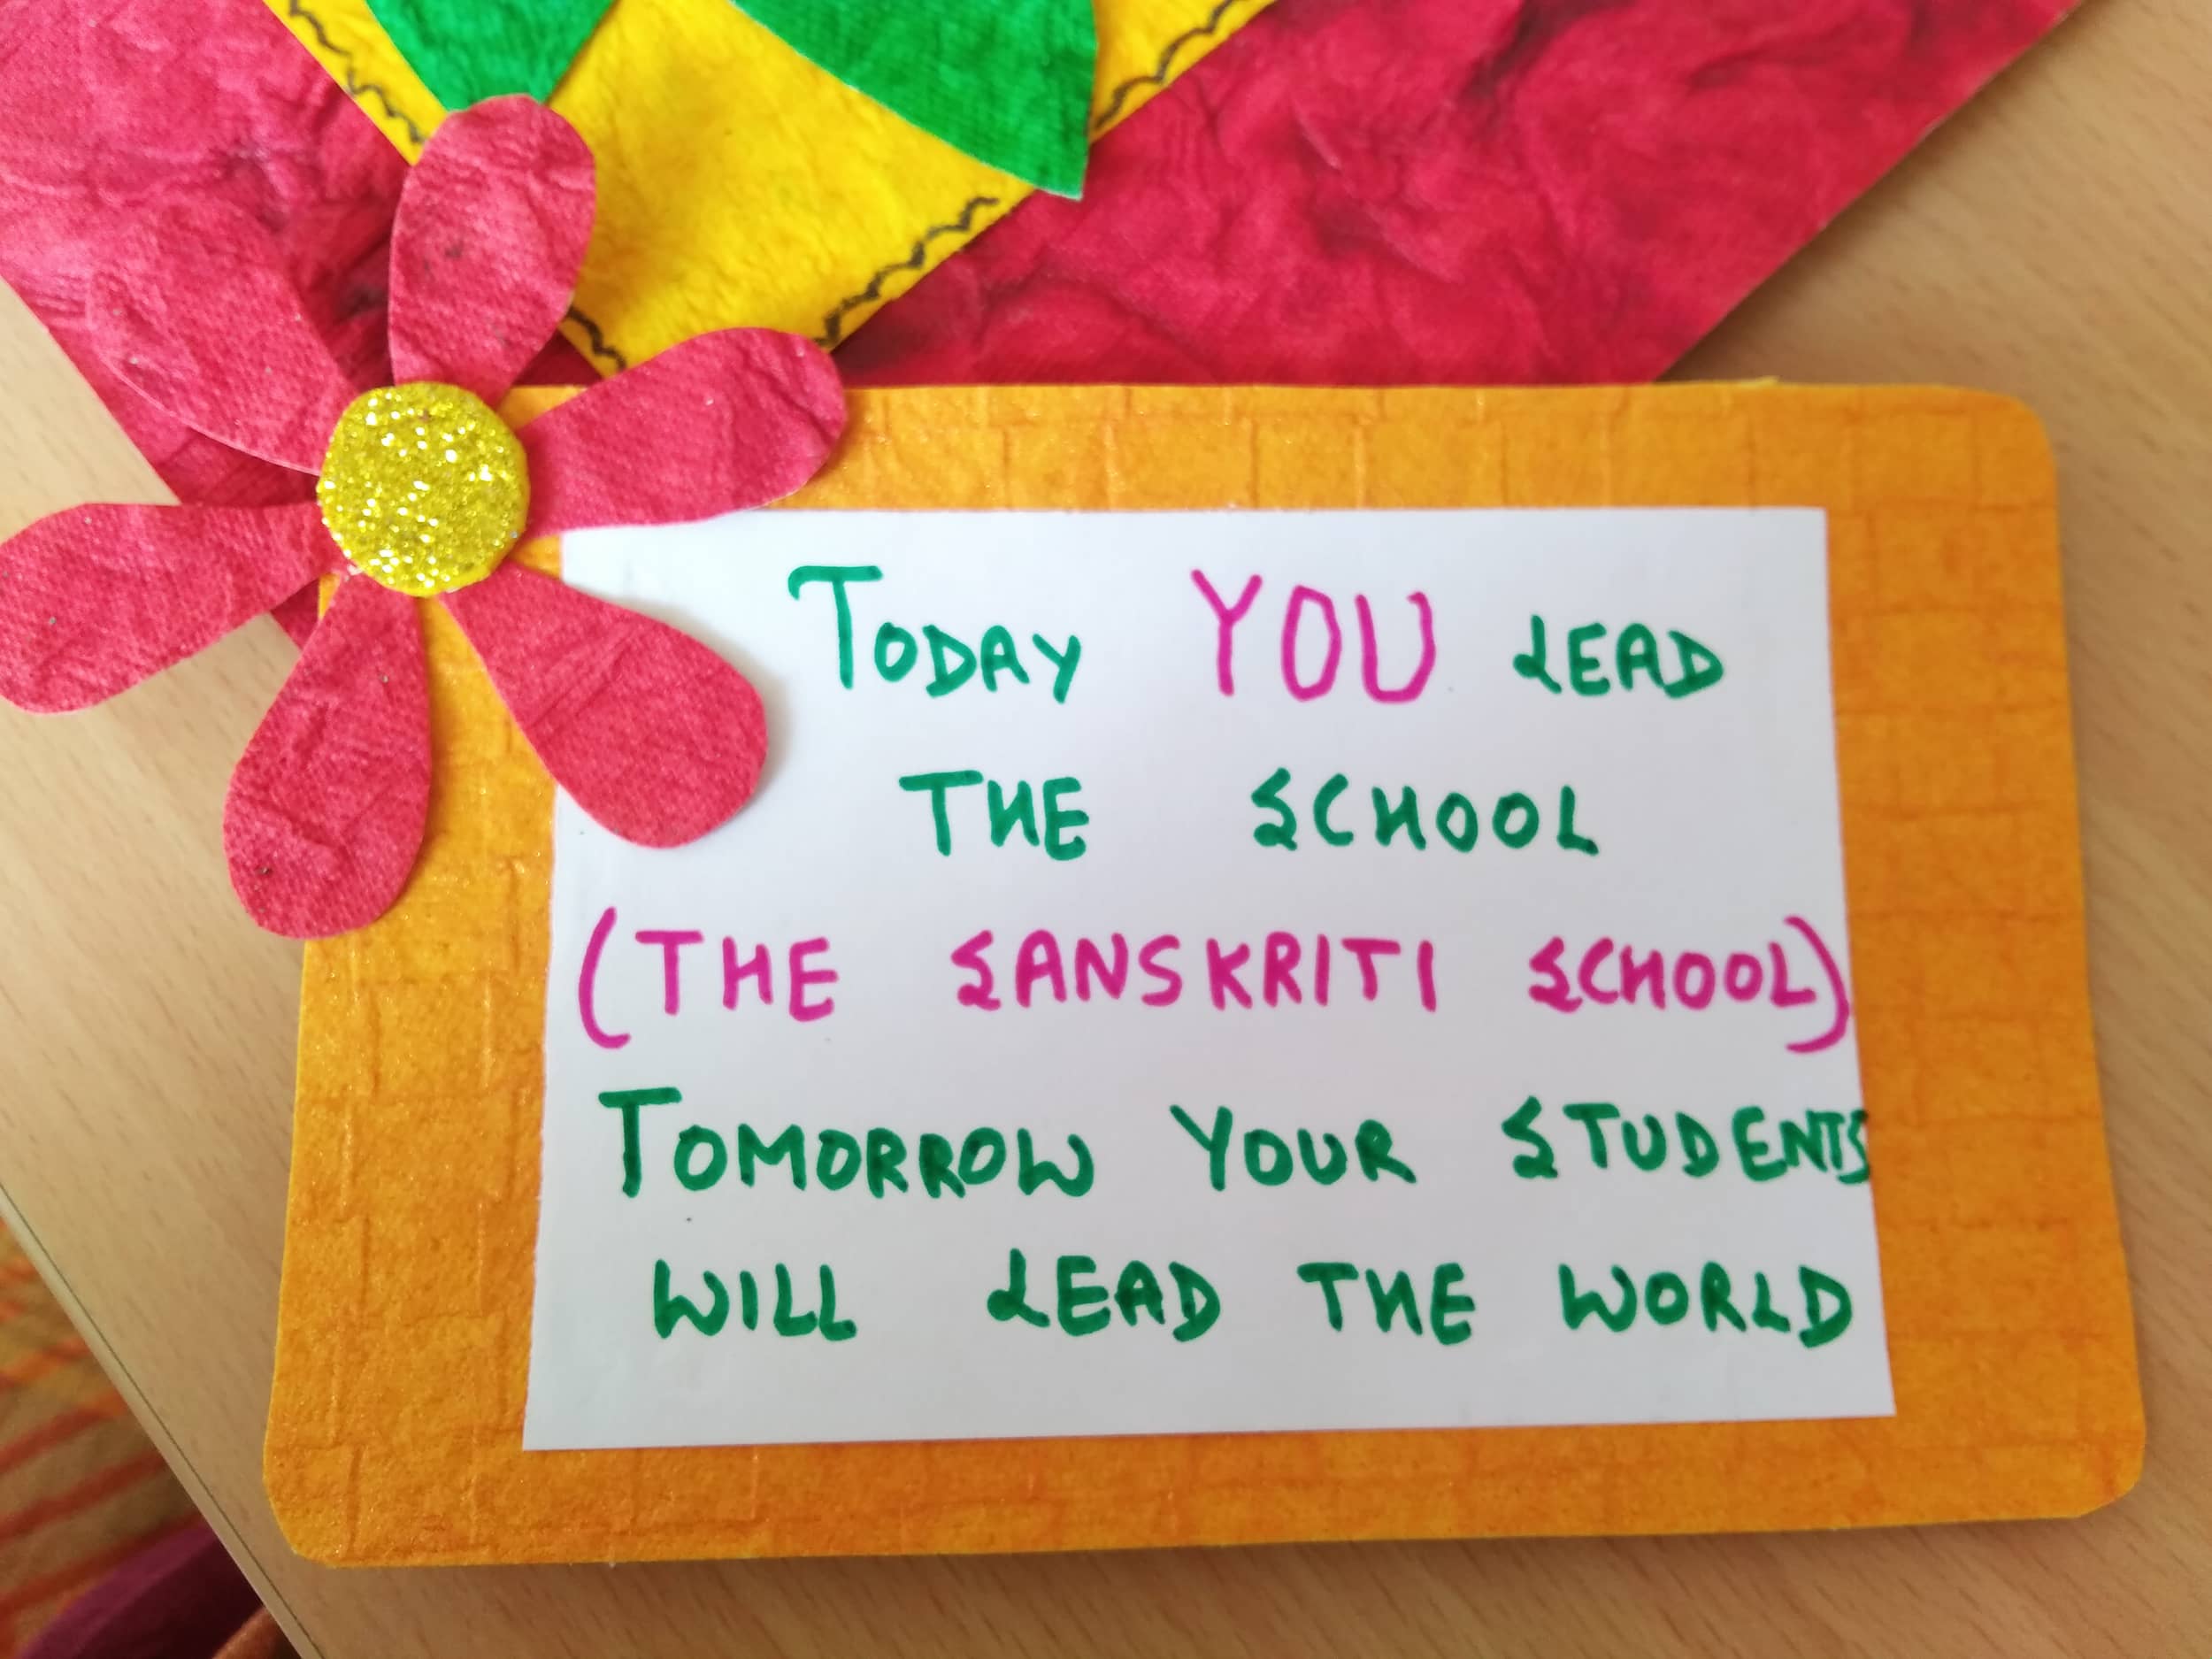 TODAY YOU LEAD
THE SCHOOL
(THE SANSKRITI SCHOOL)
TOMORROW YOUR STUDENTS
WILL LEAD THE WORLD